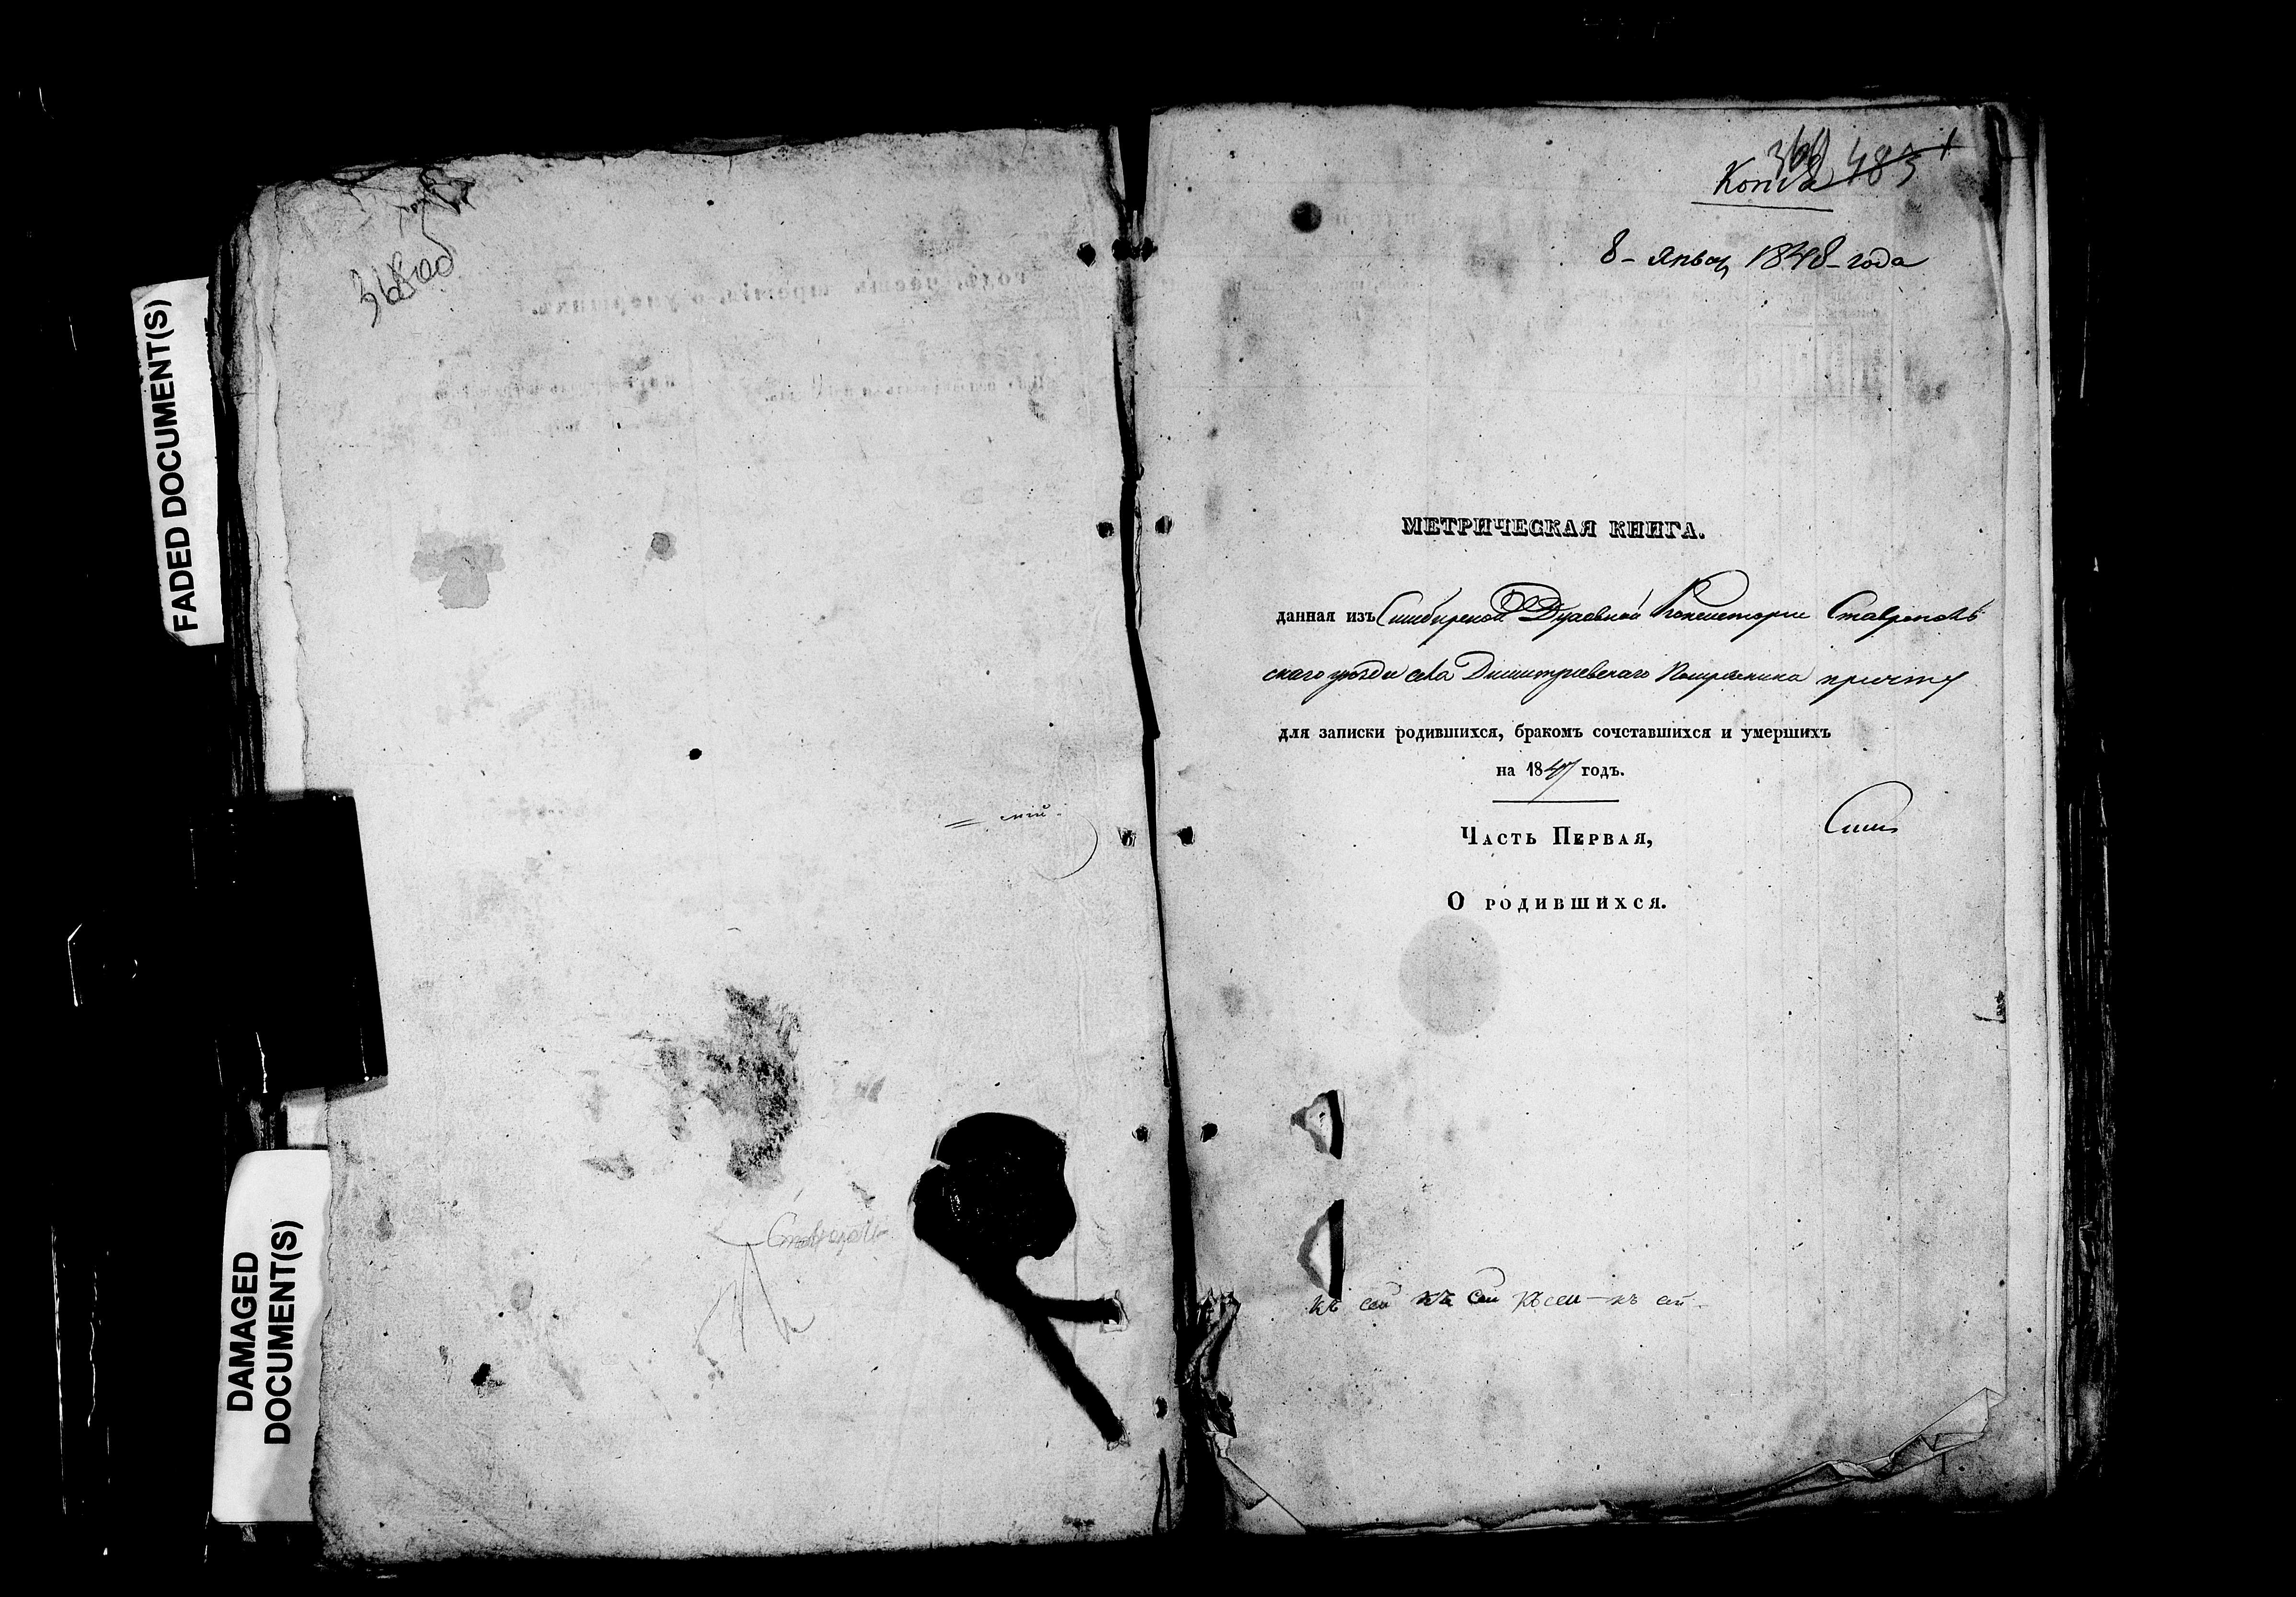 FADED DOCUMENT(S)
DAMAGED
DOCUMENT(S)
368об
Ставрополь
369 483
Копія
8 - Январ 1848 - года
МЕТРИЧЕСКАЯ КНИГА.
данная изъ Симбирской Духовной Консисторіи Ставрополь
скаго уѣзда села Димитріевскаго Помряскина причту
для записки родившихся, бракомъ сочставшихся и умершихъ
на 1847 годъ.
Часть Первая,
Сим
О родившихся.
къ сей къ сей къ сей — къ сей -